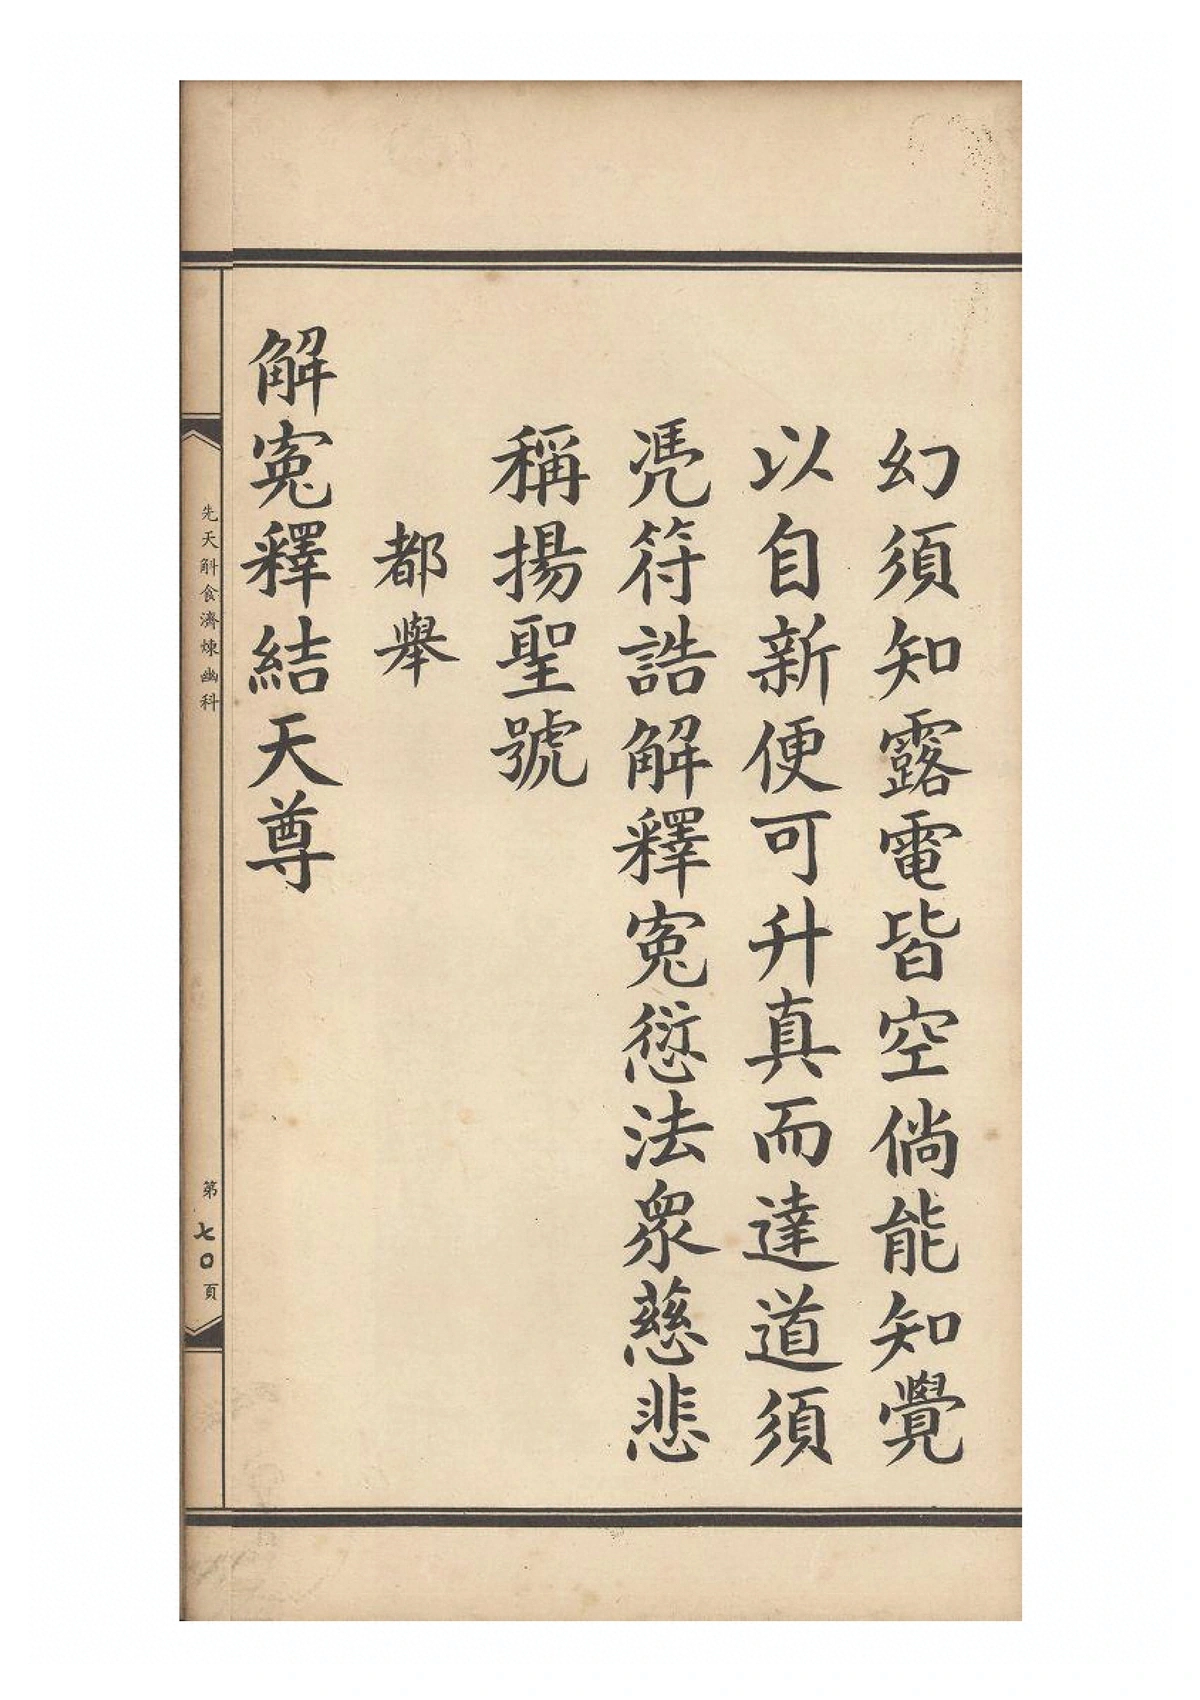 幻須知露電皆空倘能知覺
以自新便可升真而達道須
凴符誥解釋寃愆法衆慈悲
稱揚聖號
都舉
解寃釋結天尊
先天斛食濟煉幽科
第七〇頁